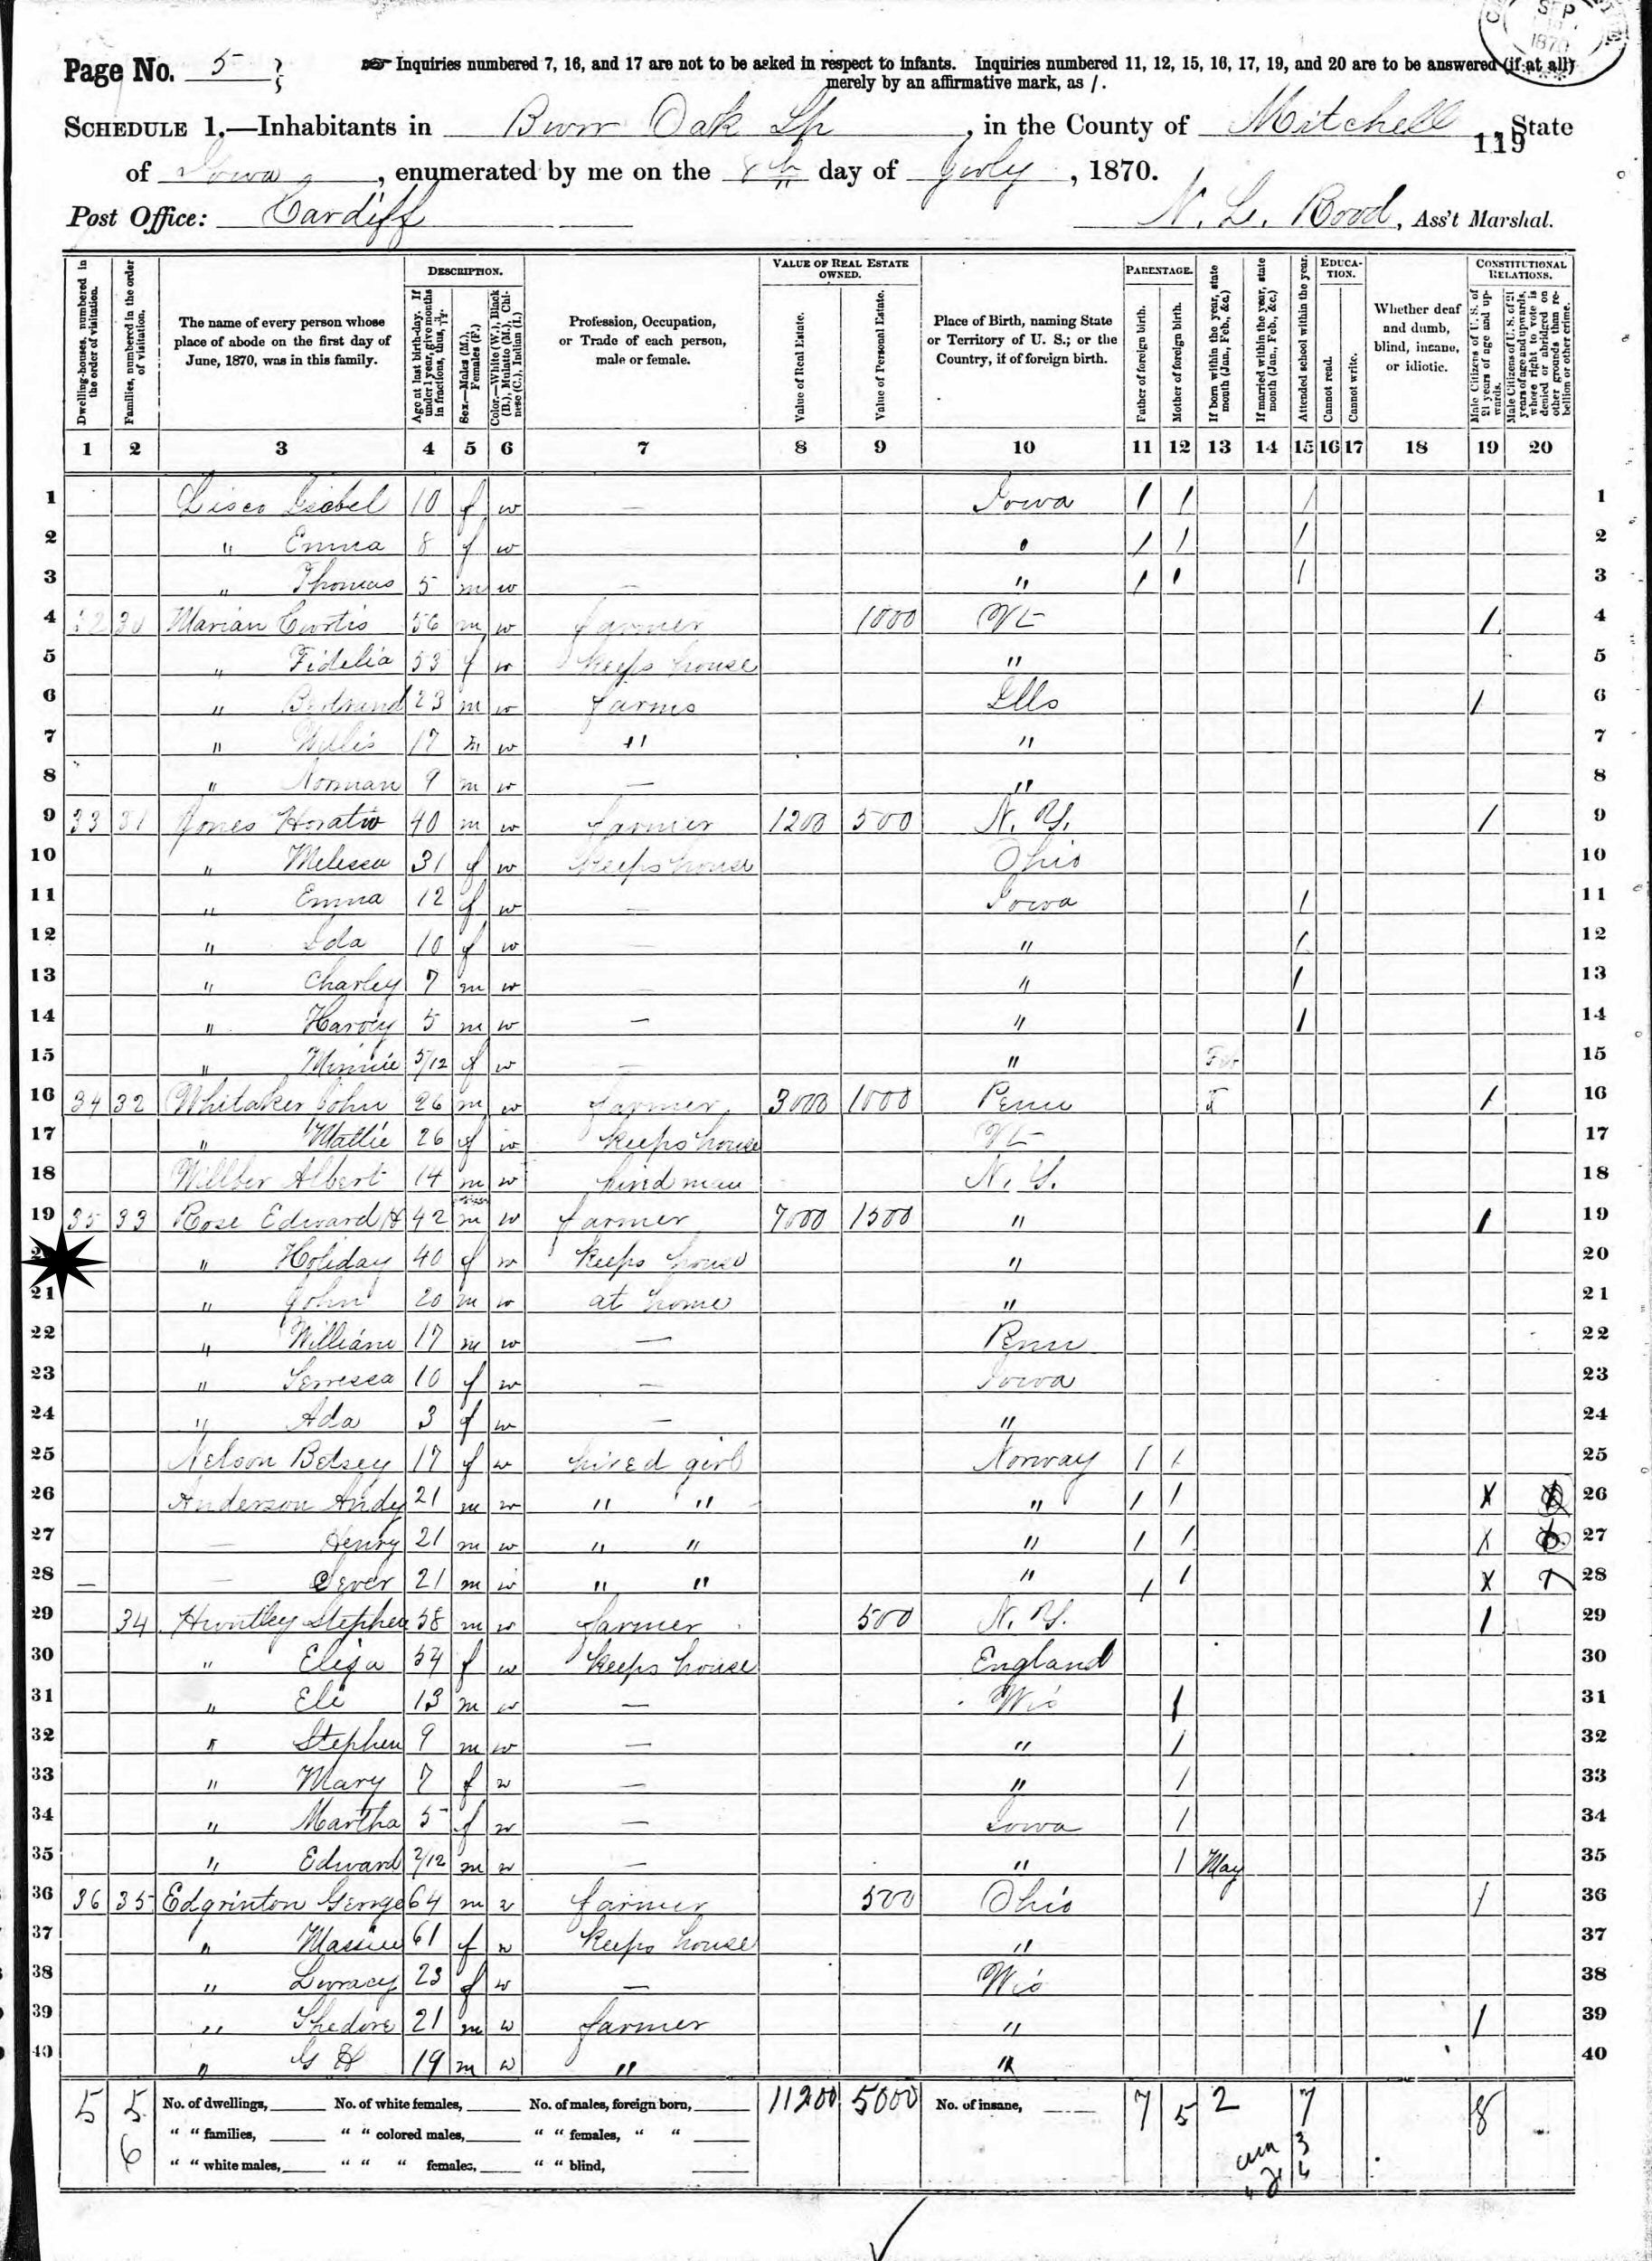 SEP
1870
Page No. 5
Inquiries numbered 7, 16, and 17 are not to be asked in respect to infants. Inquiries numbered 11, 12, 15, 16, 17, 19, and 20 are to be answered (if at all)
merely by an affirmative mark, as /.
SCHEDULE 1.—Inhabitants in Burr Oak Tp, in the County of Mitchell, State
119
of Iowa, enumerated by me on the 8th day of July, 1870.
Post Office: Cardiff N. L. Rood, Ass't Marshal.
Dwelling-houses, numbered in the order of visitation.
Families, numbered in the order of visitation.
The name of every person whose place of abode on the first day of June, 1870, was in this family.
DESCRIPTION.
Age at last birth-day. If under 1 year, give months in fractions, thus,
Sex.—Males (M.), Females (F.)
Color.—White (W.), Black (B.), Mulatto (M.), Chinese (C.), Indian (I.)
Profession, Occupation, or Trade of each person, male or female.
VALUE OF REAL ESTATE OWNED.
Value of Real Estate.
Value of Personal Estate.
Place of Birth, naming State or Territory of U. S.; or the Country, if of foreign birth.
PARENTAGE.
Father of foreign birth.
Mother of foreign birth.
If born within the year, state month (Jan., Feb., &c.)
If married within the year, state month (Jan., Feb., &c.)
Attended school within the year.
EDUCATION.
Cannot read.
Cannot write.
Whether deaf and dumb, blind, insane, or idiotic.
CONSTITUTIONAL RELATIONS.
Male Citizens of U. S. of 21 years of age and upwards.
Male Citizens of U. S. of 21 years of age and upwards, where right to vote is denied or abridged on other grounds than rebellion or other crime.
1 2 3 4 5 6 7 8 9 10 11 12 13 14 15 16 17 18 19 20
1 10 f w — Iowa / / / 1
2 " Emma 8 f w " / / / 2
3 " Thomas 5 m w — " / / / 3
4 30 Marian Curtis 56 m w farmer 1000 Vt / 4
5 " Fidelia 53 f w keeps house " 5
6 " Bertrand 23 m w farms Ills / 6
7 " Willis 17 m w " " 7
8 " Norman 9 m w — " 8
9 33 31 Jones Horatio 40 m w farmer 1200 500 N. Y. / 9
10 " Melissa 31 f w keeps house Ohio 10
11 " Emma 12 f w — Iowa / 11
12 " Ida 10 f w — " / 12
13 " Charley 7 m w — " / 13
14 " Harvey 5 m w — " / 14
15 " Minnie 5/12 f w — " 15
16 34 32 Whitaker John 26 m w farmer 3000 1000 Penn / 16
17 " Mattie 26 f w keeps house Vt 17
18 Willber Albert 14 m w hired man N. Y. 18
19 35 33 Rose Edward H 42 m w farmer 7000 1500 " / 19
" Holiday 40 f w keeps house " 20
21 " John 20 m w at home " 21
22 " William 17 m w — Penn 22
23 " 10 f w — Iowa 23
24 " Ada 3 f w — " 24
25 Nelson Betsey 17 f w hired girl Norway / / 25
26 Anderson Andy 21 m w " " " / / X 26
27 — Henry 21 m w " " " / / X 27
28 — — Sever 21 m w " " " / / X 28
29 34 Huntley Stephen 58 m w farmer 500 N. Y. / 29
30 " Eliza 34 f w keeps house England 30
31 " Eli 13 m w — Wis / 31
32 " Stephen 9 m w — " / 32
33 " Mary 7 f w — " / 33
34 " Martha 5 f w — Iowa / 34
35 " Edward 2/12 m w — " / May 35
36 36 35 Edgrinton George 64 m w farmer 500 Ohio / 36
37 " 61 f w keeps house " 37
38 " 23 f w — Wis 38
39 " Thedore 21 m w farmer " / 39
40 " G H 19 m w " " 40
5 5 No. of dwellings, No. of white females, No. of males, foreign born, 11200 5000 No. of insane, 7 5 2 7 8
6 " " families, " " colored males, " " females, " " 3
" " white males, " " " females, " " blind,